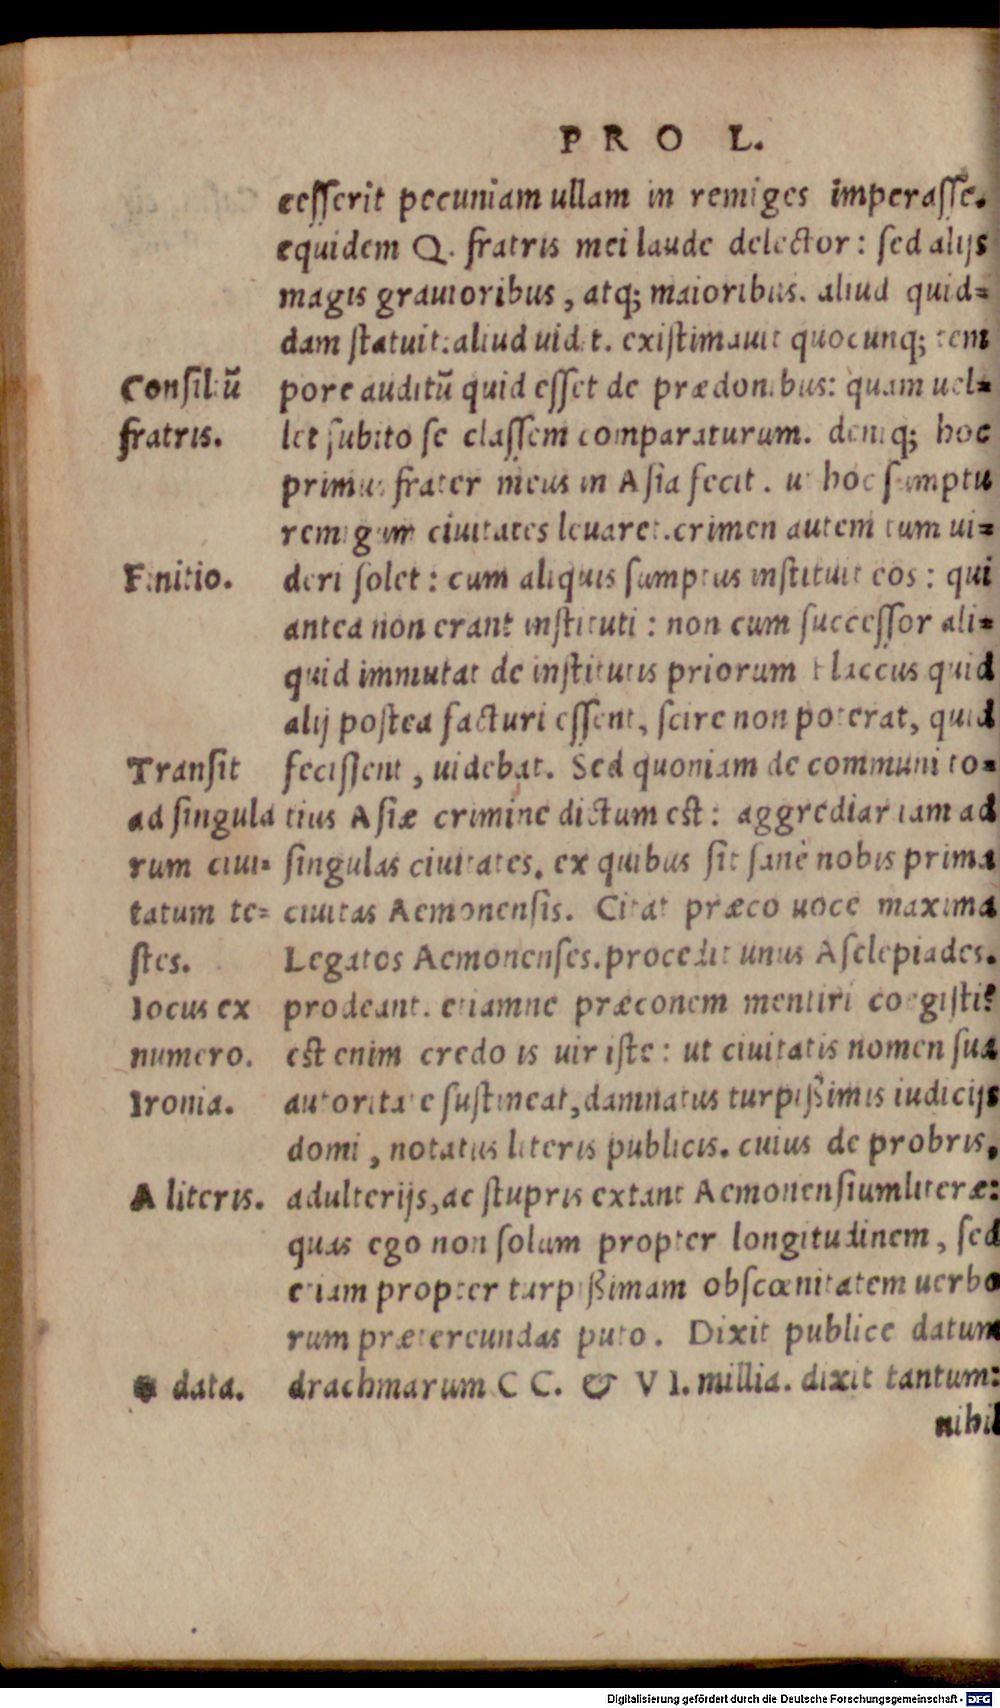 PRO L.
cesserit pecuniam ullam in remiges imperasse.
equidem Q. fratris mei laude delector: sed alijs
magis grauioribus, atq; maioribus. aliud quid=
dam statuit: aliud uidit. existimauit quocunq; tem
Consiliū pore auditū quid esset de prædonibus: quam uel=
fratris. let subito se classem comparaturum. deniq; hoc
primus frater meus in Asia fecit. ut hoc sumptu
remigum ciuitates leuaret. crimen autem tum ui=
Finitio. deri solet: cum aliquis sumptus instituit eos: qui
antea non erant instituti: non cum successor ali=
quid immutat de institutis priorum Flaccus quid
alij postea facturi essent, scire non poterat, quid
Transit fecissent, uidebat. Sed quoniam de communi to=
ad singula tius Asiæ crimine dictum est: aggrediar iam ad
rum ciui= singulas ciuitates. ex quibus sit sanè nobis prima
tatum te= ciuitas Aemonensis. Citat præco uoce maxima
stes. Legatos Aemonenses. procedit unus Asclepiades.
locus ex prodeant. etiamne præconem mentiri coegisti?
numero. est enim credo is uir iste: ut ciuitatis nomen sua
Ironia. autoritate sustineat, damnatus turpißimis iudicijs
domi, notatus literis publicis. cuius de probris,
A literis. adulterijs, ac stupris extant Aemonensium literæ:
quas ego non solum propter longitudinem, sed
etiam propter turpißimam obscœnitatem uerbo
rum prætereundas puto. Dixit publice datum
data. drachmarum CC. & VI. millia. dixit tantum:
nihil
Digitalisierung gefördert durch die Deutsche Forschungsgemeinschaft - DFG